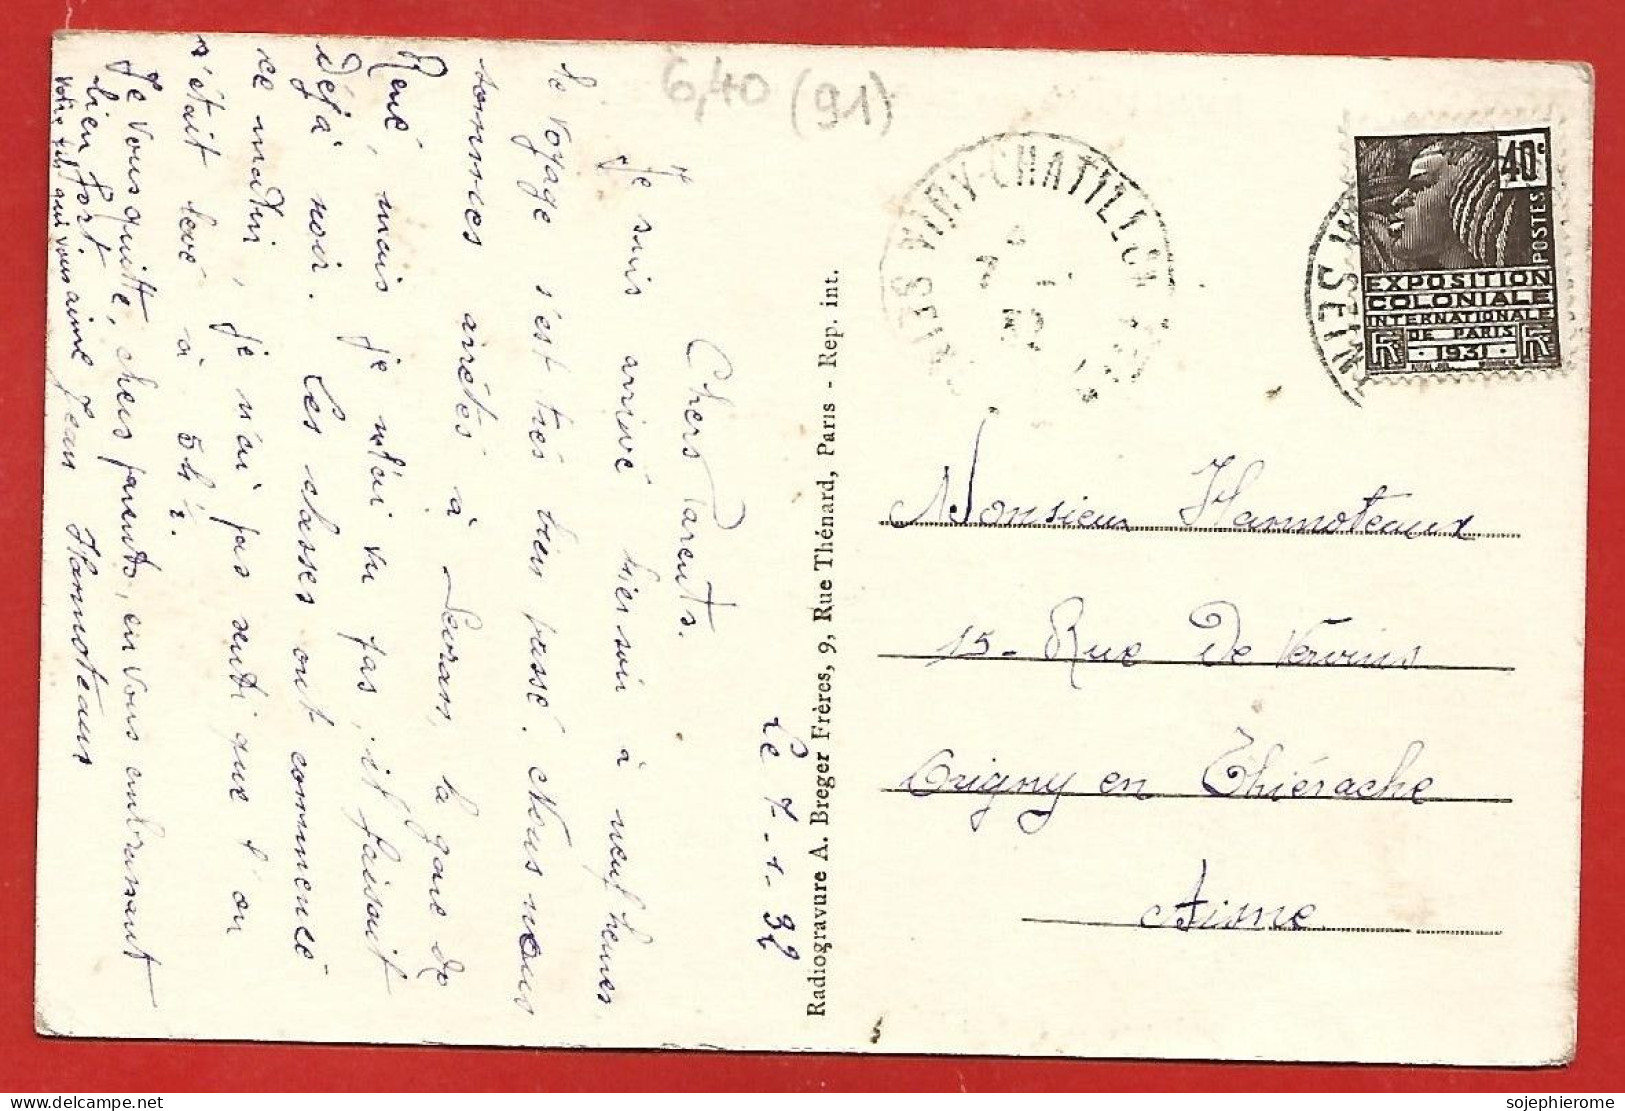 6,40 (91)
Le 7-1-32
Chers Parents.
Je suis arrivé hier soir à neuf heures,
le voyage s'est très bien passé. Nous nous
sommes arrêtés à Sevran, la gare de
René, mais je n'ai vu pas, il faisait
déjà noir. Les classes ont commencé
ce matin, je n'ai pas senti que l'on
s'était levé à 5h ½.
Je vous quitte, chers parents, en vous embrassant
bien fort.
Votre fils qui vous aime Jean Harmoteaux
Radiogravure A. Breger Frères, 9, Rue Thénard, Paris - Rep. int.
VIRY-CHATILLON
7 1
32
40c
POSTES
EXPOSITION
COLONIALE
INTERNATIONALE
DE PARIS
RF · 1931 · RF
Monsieur Harmoteaux
15 - Rue De Vervins
Origny en Thiérache
Aisne
sojephierome